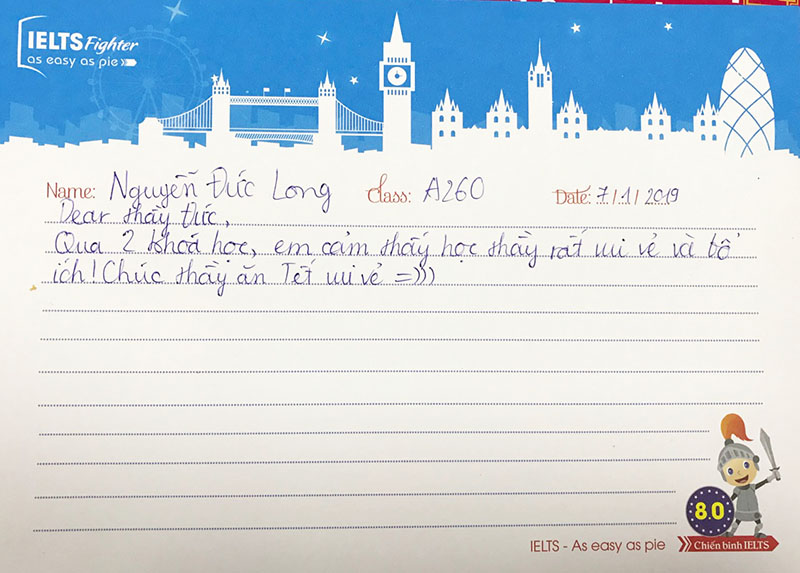 IELTS Fighter
as easy as pie
Name: Nguyễn Đức Long Class: A260 Date: 7/1/2019
Dear thầy Đức,
Qua 2 khoá học, em cảm thấy học thầy rất vui vẻ và bổ
ích! Chúc thầy ăn Tết vui vẻ =)))
8.0
IELTS - As easy as pie Chiến binh IELTS